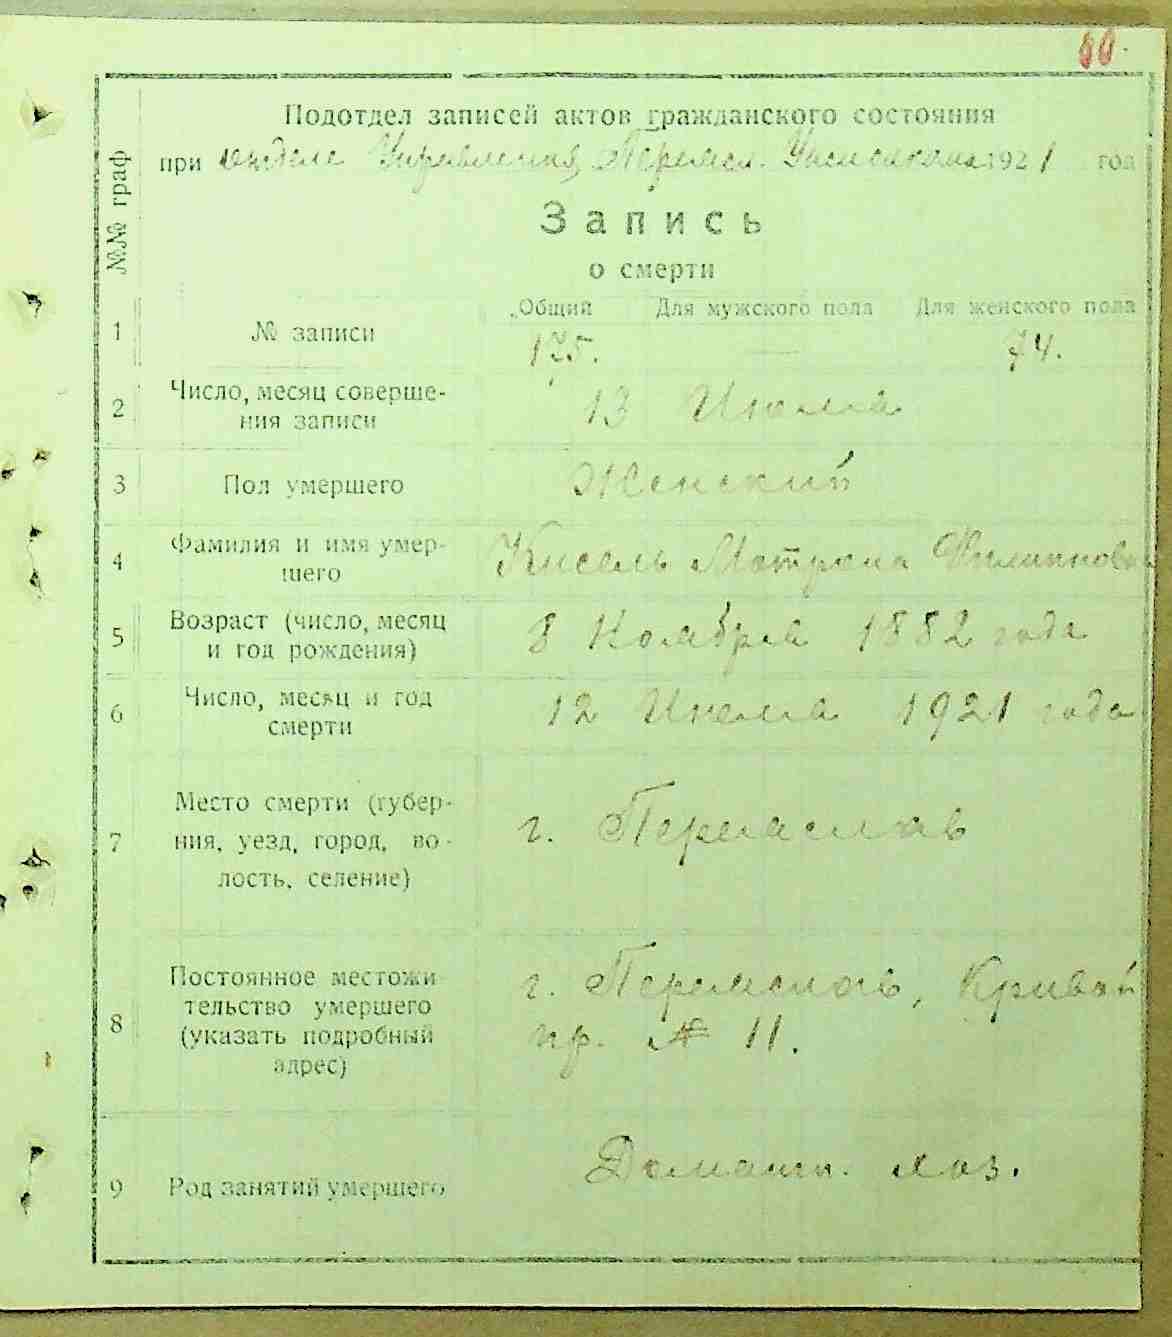 60.
Подотдел записей актов гражданского состояния
при отделе Управления Переясл. Уисполкома 1921 год
№№ граф
Запись
о смерти
Общий Для мужского пола Для женского пола
1 № записи 175. — 74.
2 Число, месяц соверше-
ния записи 13 Июля
3 Пол умершего Женский
4 Фамилия и имя умер-
шего Кисель Мотрона Филипповна
5 Возраст (число, месяц
и год рождения) 8 Ноября 1882 года
6 Число, месяц и год
смерти 12 Июля 1921 года
7 Место смерти (губер-
ния, уезд, город, во-
лость, селение) г. Переяслав
8 Постоянное местожи
тельство умершего
(указать подробный
адрес) г. Переяслав, Кривой
пр. № 11.
9 Род занятий умершего Домашн. хоз.